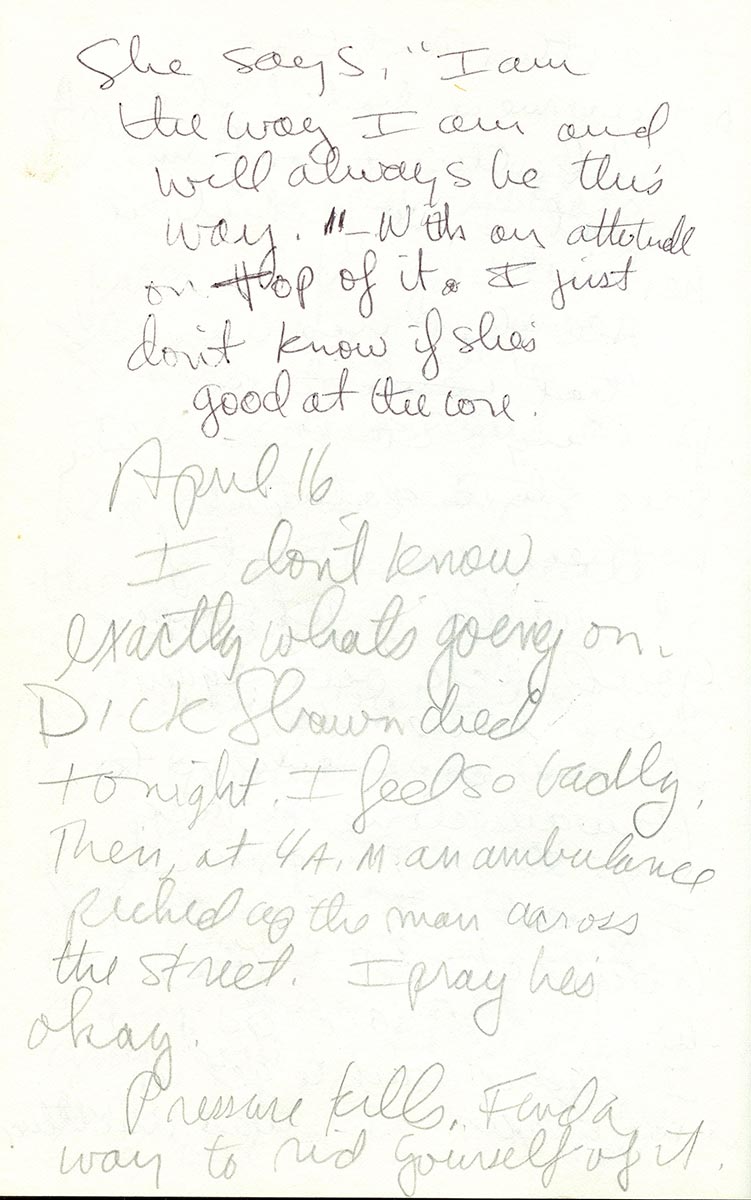 She says, "I am
the way I am and
will always be this
way." - With an attitude
on top of it. I just
don't know if she's
good at the core.
April 16
I don't know
exactly what's going on.
Dick Shawn died
tonight. I feel so badly.
Then, at 4 A.M. an ambulance
picked up the man across
the street. I pray he's
okay.
Pressure kills. Find a
way to rid yourself of it.